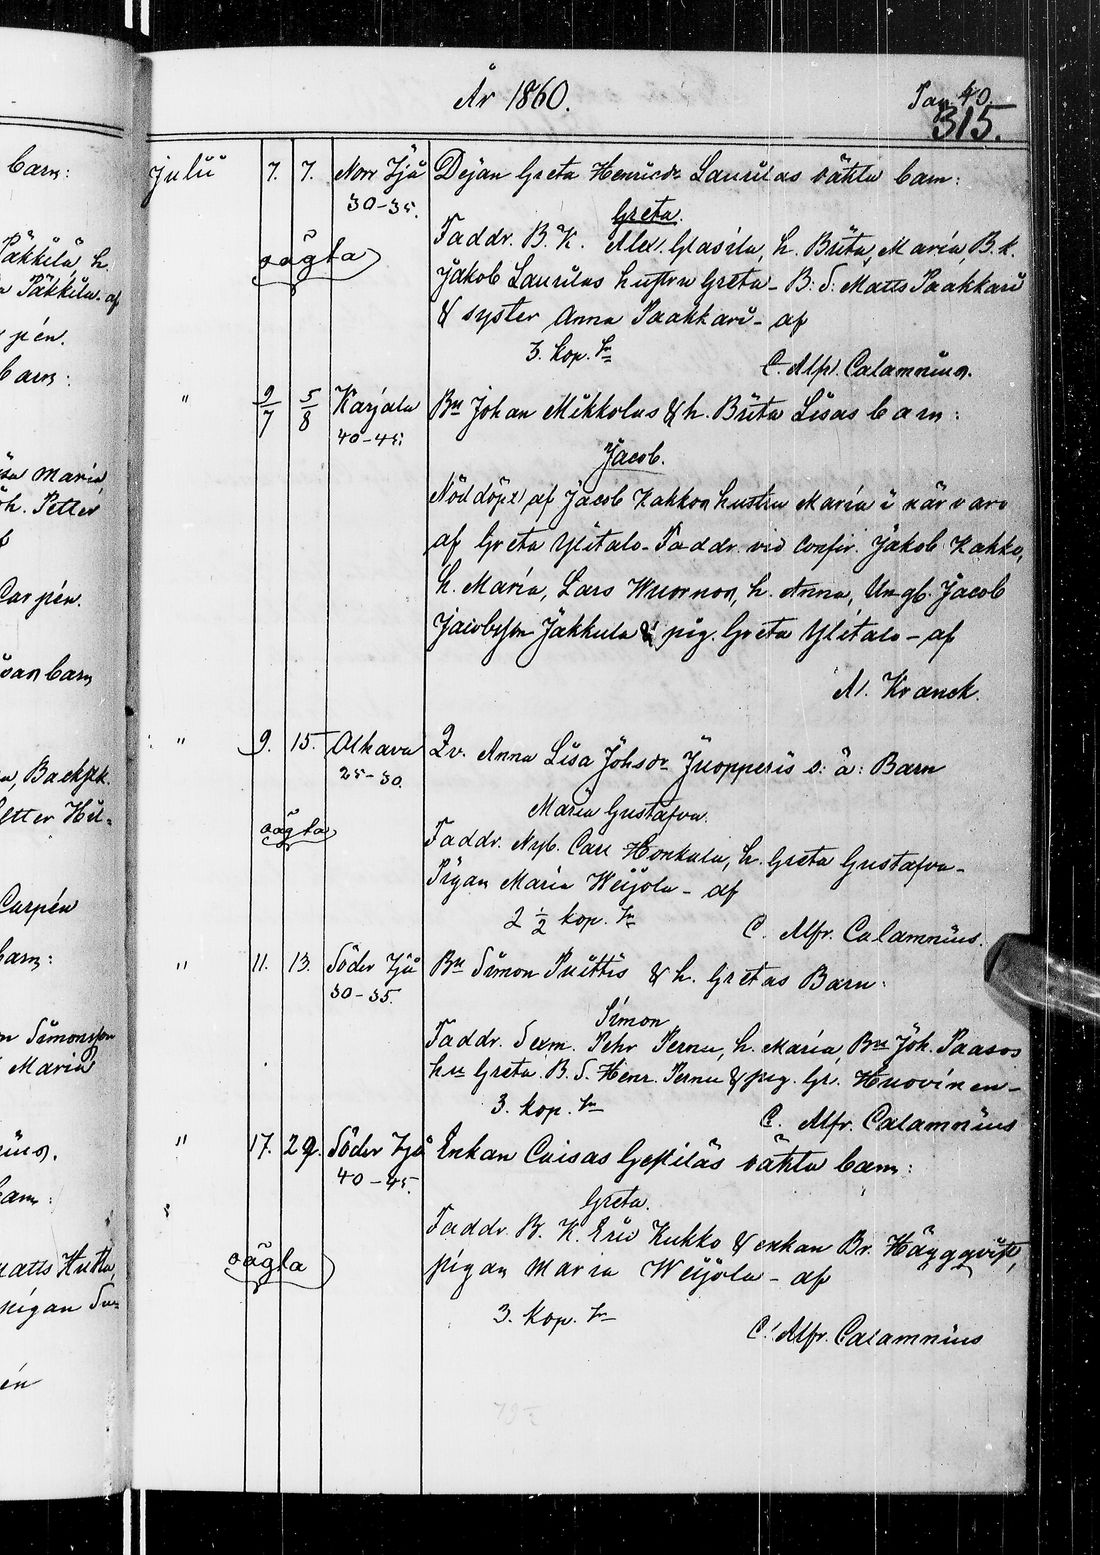 År 1860.
Pag. 40.
315.
Julii 7. 7. Norr Ijå Dejan Greta Henricsdr Laurilas oäkta barn:
30-35.
Greta.
oägta
Faddr. B. K. Alex. Glasila, h. Brita Maria, B. k.
Jakob Laurilas hustru Greta - B. S. Matts Paakkari
& syster Anna Paakkari - af
3. kop. Sr
C. Alfr. Calamnius.
" 9/7 5/8 Karjala Bn Johan Mikkolas & h. Brita Lisas barn:
40-45.
Jacob.
Nöddöpt af Jacob Kakkos hustru Maria i närvaro
af Greta Ylitalo - Faddr. vid confir. Jakob Kakko,
h. Maria, Lars Wuornos, h. Anna, Ungk. Jacob
Jacobsson Jakkula & pig. Greta Ylitalo - af
A. Kranck.
" 9. 15. Alhava Qv. Anna Lisa Johsdr Juopperis o: ä: Barn
25-30.
Maria Gustafva.
oägta
Faddr. Nyb. Carl Honkala, h. Greta Gustafva -
Pigan Maria Weijola - af
2 1/2 kop. Sr
C. Alfr. Calamnius.
" 11. 13. Söder Ijå Bn Simon Puittis & h. Gretas Barn:
30-35.
Simon
Faddr. Sexm. Pehr Pernu, h. Maria, Bn Joh. Paasos
hu Greta. B. S. Henr. Pernu & pig. Gr. Huovinen -
3. kop. Sr
C. Alfr. Calamnius
" 17. 29. Söder Ijå Enkan Caisas Gestiläs oäkta barn:
40-45.
Greta.
Faddr. B. K. Eric Kukko & enkan Br. Häggqvist,
oägta
pigan Maria Weijola - af
3. kop. Sr
C. Alfr. Calamnius
barn:
Päkkilä, h.
Päkkilä. af
barn:
Maria
Joh. Petter
Carpén.
barn
Backstk.
Petter Hil-
Carpén
barn:
Simonsson
Maria
barn:
Matts Hutta,
pigan